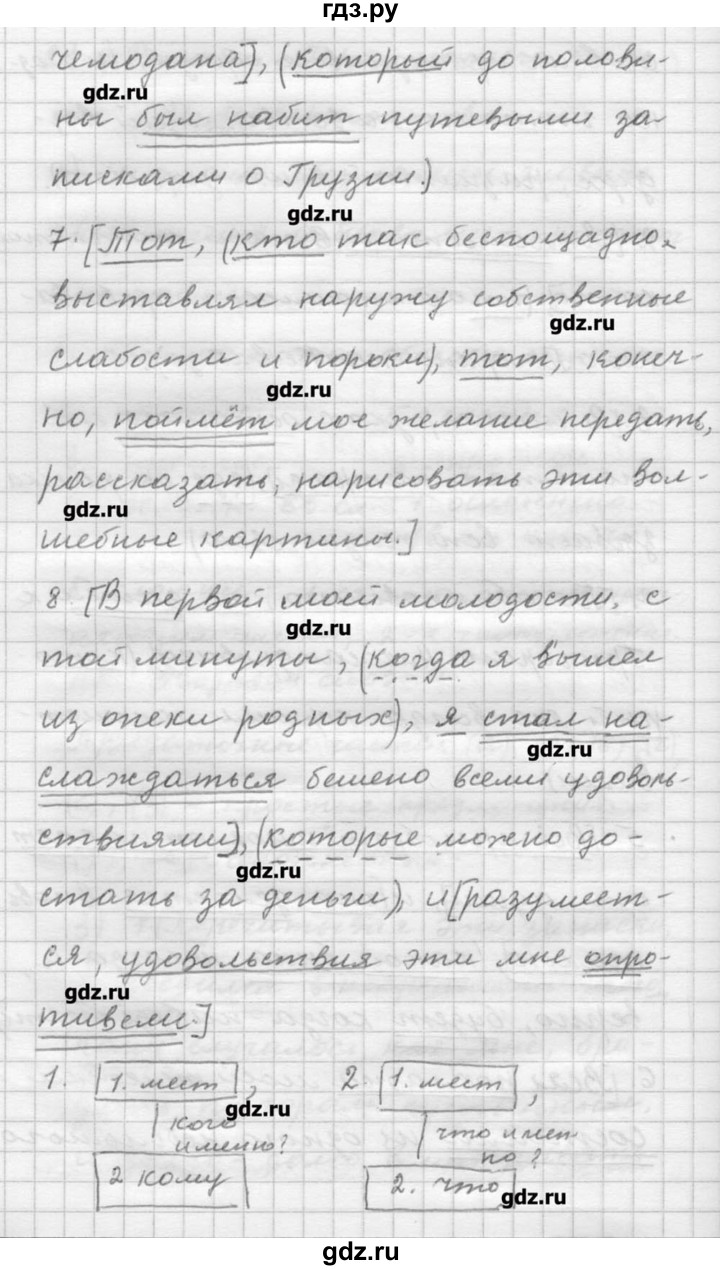 гдз.ру
чемодана], (который до полови-
gdz.ru
ны был набит путевыми за-
писками о Грузии.)
gdz.ru
7. [Тот, (кто так беспощадно
выставлял наружу собственные
gdz.ru
слабости и пороки), тот, конеч-
gdz.ru
но, поймёт мое желание передать,
рассказать, нарисовать эти вол-
gdz.ru
шебные картины.]
8. [В первой моей молодости, с
gdz.ru
той минуты, (когда я вышел
из опеки родных), я стал на-
gdz.ru
слаждаться бешено всеми удоволь-
ствиями], (которые можно до-
gdz.ru
стать за деньги), и [разумеет-
ся, удовольствия эти мне опро-
gdz.ru
тивели.]
1. 1. мест , 2. 1. мест ,
gdz.ru
кого именно? что имен но?
2 кому 2. что
gdz.ru
gdz.ru